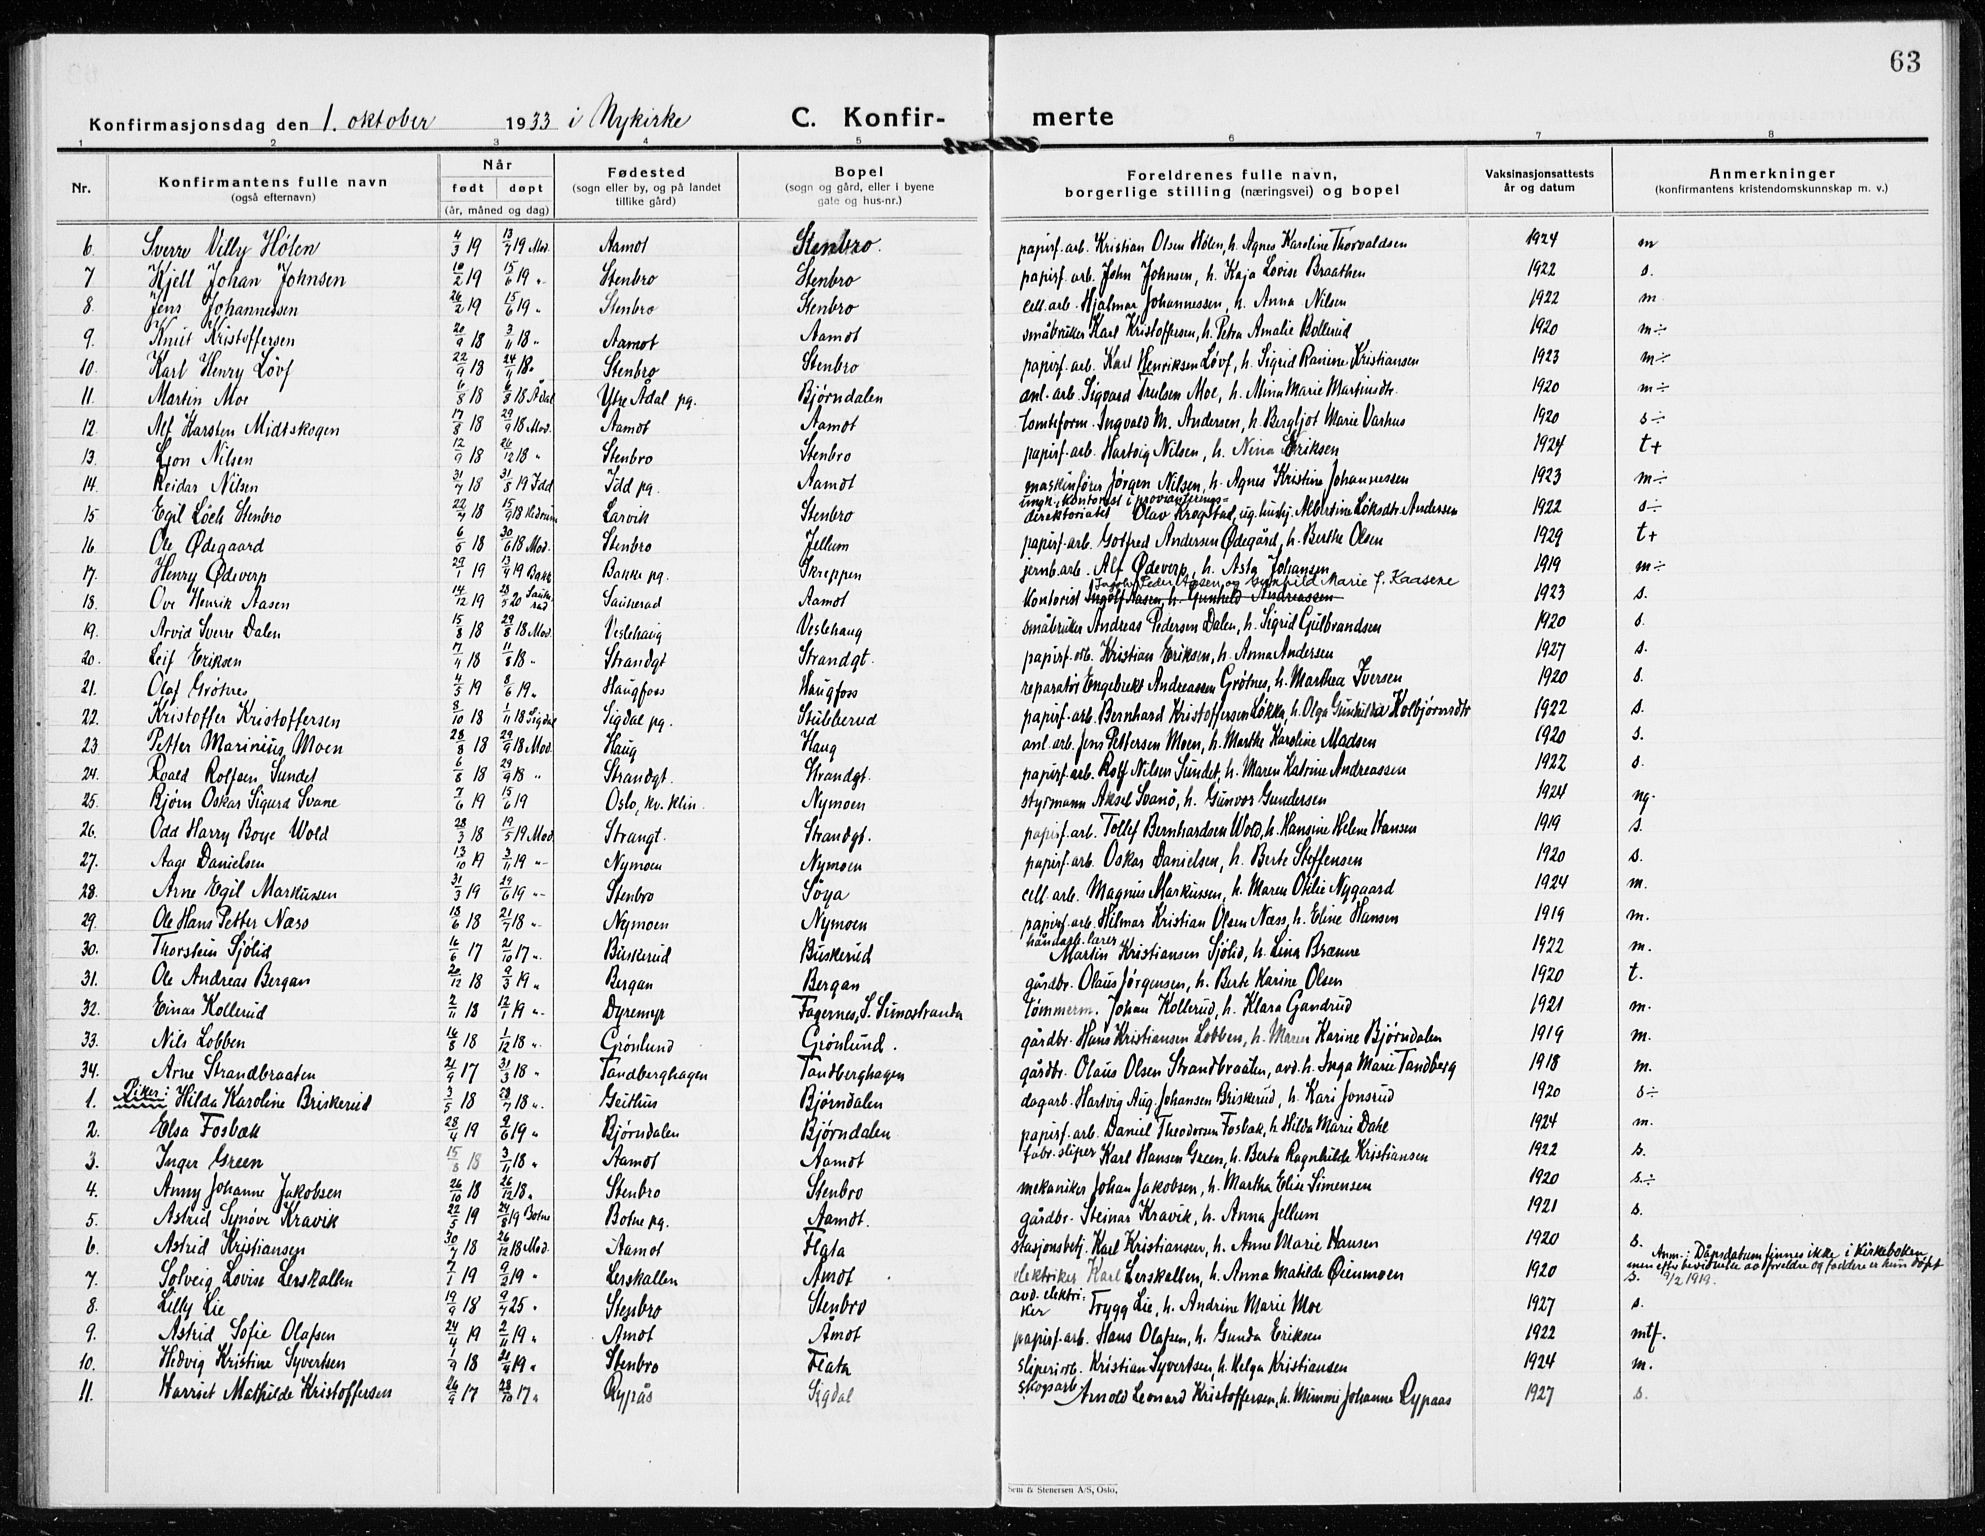 63
Konfirmasjonsdag den 1. oktober 1933 i Nykirke C. Konfir- merte
1 2 3 4 5 6 7 8
Nr. Konfirmantens fulle navn (også efternavn) Når født døpt (år, måned og dag) Fødested (sogn eller by, og på landet tillike gård) Bopel (sogn og gård, eller i byene gate og hus-nr.) Foreldrenes fulle navn, borgerlige stilling (næringsvei) og bopel Vaksinasjonsattests år og datum Anmerkninger (konfirmantens kristendomskunnskap m. v.)
6. Sverre Villy Hölen 4/3 19 13/7 19 Mod. Aamot Stenbro. papirf. arb. Kristian Olsen Hölen, h. Agnes Karoline Thorvaldsen 1924 m
7 Kjell Johan Johnsen 10/2 19 15/6 19 " Stenbro Stenbro papirf. arb. John Johnsen, h. Kaja Lovise Braathen 1922 s.
8. Jens Johannessen 26/2 19 15/6 19 " Stenbro Stenbro cell. arb. Hjalmar Johannessen, h. Anna Nilsen 1922 m
9. Knut Kristoffersen 20/9 18 3/11 18 " Aamot Aamot småbruker Karl Kristoffersen, h. Petra Amalie Bollerud 1920 m÷
10. Karl Henry Lövf 22/9 18 24/11 18 " Stenbro Stenbro papirf. arb. Karl Henriksen Lövf, h. Sigrid Raniene Kristiansen 1923 m÷
11. Martin Moe 6/8 18 6/8 18 Ådal Ytre Ådal pg. Bjørndalen anl. arb. Sigvard Trulsen Moe, h. Mina Marie Martinsdtr. 1920 m÷
12 Alf Karsten Midtskogen 17/8 18 29/9 18 Mod. Aamot Aamot tomteform. Ingvald M. Andersen, h. Bergljot Marie Varhus 1920 s÷
13. Leon Nilsen 12/9 18 26/12 18 " Stenbro Stenbro papirf. arb. Hartvig Nilsen, h. Nina Eriksen 1924 t+
14. Reidar Nilsen 31/7 18 31/8 19 Idd Idd pg. Aamot maskinfører Jørgen Nilsen, h. Agnes Kristine Johannessen 1923 m÷
15 Egil Löch Stenbro 22/7 18 15/9 18 Hedrum Larvik Stenbro ungk., kontorist i provianterings-
direktoriatet Olav Krogstad, ug. hushj. Albertine Löksdtr. Andersen 1922 s÷
16 Ole Ødegaard 6/5 18 30/6 18 Mod. Stenbro Jellum papirf. arb. Gotfred Andersen Ødegård, h. Berthe Olsen 1929 t+
17. Henry Ødeverp 29/1 19 13/4 19 Bakke Bakke pg. Skreppen jernb. arb. Alf Ødeverp, h. Asta Johansen 1919 m÷
18. Ove Henrik Aasen 14/12 19 28/5 20 Sauherad Sauherad Aamot Jacob Peder Aasen og Gunhild Marie f. Kaasene
kontorist Ingolf Aasen, h. Gunhild Andreassen 1923 s.
19. Arvid Sverre Dalen 15/8 18 29/8 18 Mod. Veslehaug Veslehaug småbruker Andreas Pedersen Dalen, h. Sigrid Gulbrandsen 1920 s.
20. Leif Eriksen 7/4 18 11/8 18 " Strandgt Strandgt. papirf. arb. Kristian Eriksen, h. Anna Andersen 1927 s.
21. Olaf Grötnes 4/5 19 8/6 19 " Haugfoss Haugfoss reparatör Engebrekt Andreassen Grötnes, h. Marthea Iversen 1920 s.
22. Kristoffer Kristoffersen 8/10 18 1/11 18 Sigdal Sigdal pg. Stubberud papirf. arb. Bernhard Kristoffersen Løkka, h. Olga Gunhilda Kolbjørnsdtr 1922 s.
23 Petter Marinius Moen 28/8 18 29/9 18 Mod. Haug Haug anl. arb. Jens Pettersen Moen, h. Marthe Karoline Madsen 1920 s.
24. Roald Rolfsen Sundet 6/8 18 29/9 18 " Strandgt. Strandgt. papirf. arb. Rolf Nilsen Sundet, h. Maren Katrine Andreassen 1922 s.
25. Bjørn Oskar Sigurd Svane 7/6 19 15/6 19 Oslo, kv. klin. Nymoen styrmann Aksel Svanö, h. Gunvor Gundersen 1924 ng.
26. Odd Harry Boye Wold 28/3 18 19/5 19 Mod. Strangt. Strandgt. papirf. arb. Tollef Bernhardsen Wold, h. Hansine Helene Hansen 1919 s.
27. Aage Danielsen 13/10 19 3/11 19 " Nymoen Nymoen papirf. arb. Oskar Danielsen, h. Berte Steffensen 1920 s.
28. Arne Egil Markussen 31/3 19 29/6 19 " Stenbro Söya cell. arb. Magnus Markussen, h. Maren Otilie Nygaard 1924 m.
29. Ole Hans Petter Næss 18/6 18 21/7 18 " Nymoen Nymoen papirf. arb. Hilmar Kristian Olsen Næss, h. Eline Hansen 1919 m.
30. Thorstein Sjölid 16/6 17 21/10 17 " Buskerud Buskerud håndarb. lærer
Martin Kristiansen Sjölid, h. Lina Brænne 1922 m.
31. Ole Andreas Bergan 20/12 18 9/3 19 " Bergan Bergan gårdbr. Olaus Jørgensen, h. Berte Karine Olsen 1920 t.
32. Einar Kollerud 2/11 18 12/1 19 " Dyremyr Fagernes, S. Simostranda tömmerm. Johan Kollerud, h. Klara Gandrud 1921 m.
33. Nils Lobben 16/8 18 1/12 18 " Grönlund Grönlund. gårdbr. Hans Kristiansen Lobben, h. Maren Karine Bjørndalen 1919 m.
34. Arne Strandbraaten 21/9 17 31/3 18 " Tandberghagen Tandberghagen gårdbr. Olaus Olsen Strandbraaten, avd. h. Inga Marie Tandberg 1918 m.
1. Piker: Hilda Karoline Briskerud 3/5 18 28/7 18 " Geithus Bjørndalen dagarb. Hartvig Aug. Johansen Briskerud, h. Kari Jonsrud 1920 s÷
2. Elsa Fosbæk 28/4 19 9/6 19 " Bjørndalen Bjørndalen papirf. arb. Daniel Theodorsen Fosbak, h. Hilda Marie Dahl 1924 m.
3. Inger Green 15/8 18 3/11 18 " Aamot Aamot fabr. sliper Karl Hansen Green, h. Berta Ragnhilde Kristiansen 1922 s.
4. Anny Johanne Jakobsen 26/10 18 26/12 18 " Stenbro Stenbro mekaniker Johan Jakobsen, h. Martha Elise Simensen 1920 s÷
5. Astrid Synöve Kravik 22/5 19 24/8 19 Botne Botne pg. Aamot. gårdbr. Steinar Kravik, h. Anna Jellum 1921 s.
6. Astrid Kristiansen 30/7 18 26/12 18 Mod. Aamot Flata stasjonsbetj. Karl Kristiansen, h. Anne Marie Hansen 1920 s.
Anm.: Dåpsdatum finnes ikke i kirkeboken,
men efter bevidnelse av foreldre og faddere er hun döpt
7. Solveig Lovise Lerskallen 7/1 19 9/2 19 " Lerskallen Åmot elektriker Karl Lerskallen, h. Anna Matilde Øienmoen 1920 s. 9/2 1919.
8. Lilly Lie 19/9 18 9/7 25 " Stenbro Stenbro avd. elektri-
ker Trygg Lie, h. Andrine Marie Moe 1927 s.
9. Astrid Sofie Olafsen 24/4 19 2/11 19 " Åmot Åmot papirf. arb. Hans Olafsen, h. Gunda Eriksen 1922 mtf.
10. Hedvig Kristine Syvertsen 1/9 18 21/4 19 " Stenbro Flata sliperiarb. Kristian Syvertsen, h. Helga Kristiansen 1924 m.
11. Harriet Mathilde Kristoffersen 26/9 17 28/10 17 " Rypås Sigdal skogsarb. Arnold Leonard Kristoffersen, h. Mimmi Johanne Rypaas 1927 s.
Sem & Stenersen A/S, Oslo.